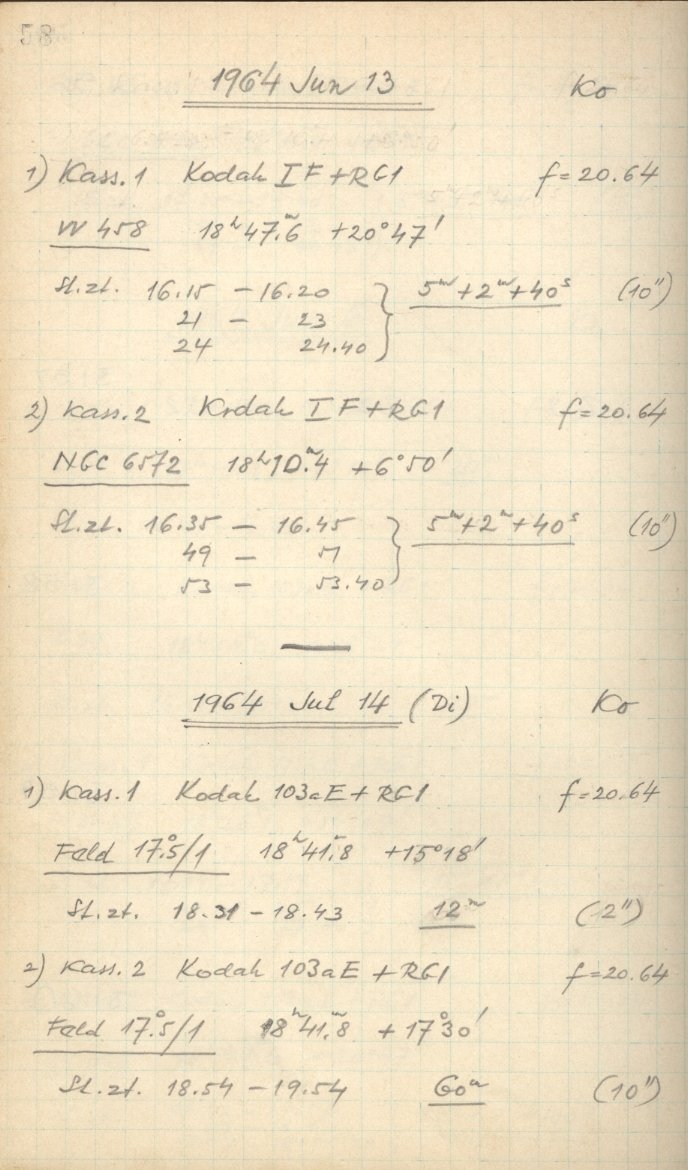 58
1964 Jun 13 Ko
1) Kass. 1 Kodak I F + RG1 f = 20.64
VV 458 18ʰ47.ᵐ6 +20°47'
St.zt. 16.15 – 16.20 } 5ᵐ+2ᵐ+40ˢ (10")
21 – 23
24 24.40
2) Kass. 2 Kodak I F + RG1 f = 20.64
NGC 6572 18ʰ10.ᵐ4 +6°50'
St.zt. 16.35 – 16.45 } 5ᵐ+2ᵐ+40ˢ (10")
49 – 51
53 – 53.40
1964 Jul 14 (Di) Ko
1) Kass. 1 Kodak 103aE + RG1 f = 20.64
Feld 17.°5/1 18ʰ41.ᵐ8 +15°18'
St.zt. 18.31 – 18.43 12ᵐ (2")
2) Kass. 2 Kodak 103aE + RG1 f = 20.64
Feld 17.°5/1 18ʰ41.ᵐ8 +17°30'
St.zt. 18.54 – 19.54 60ᵐ (10")